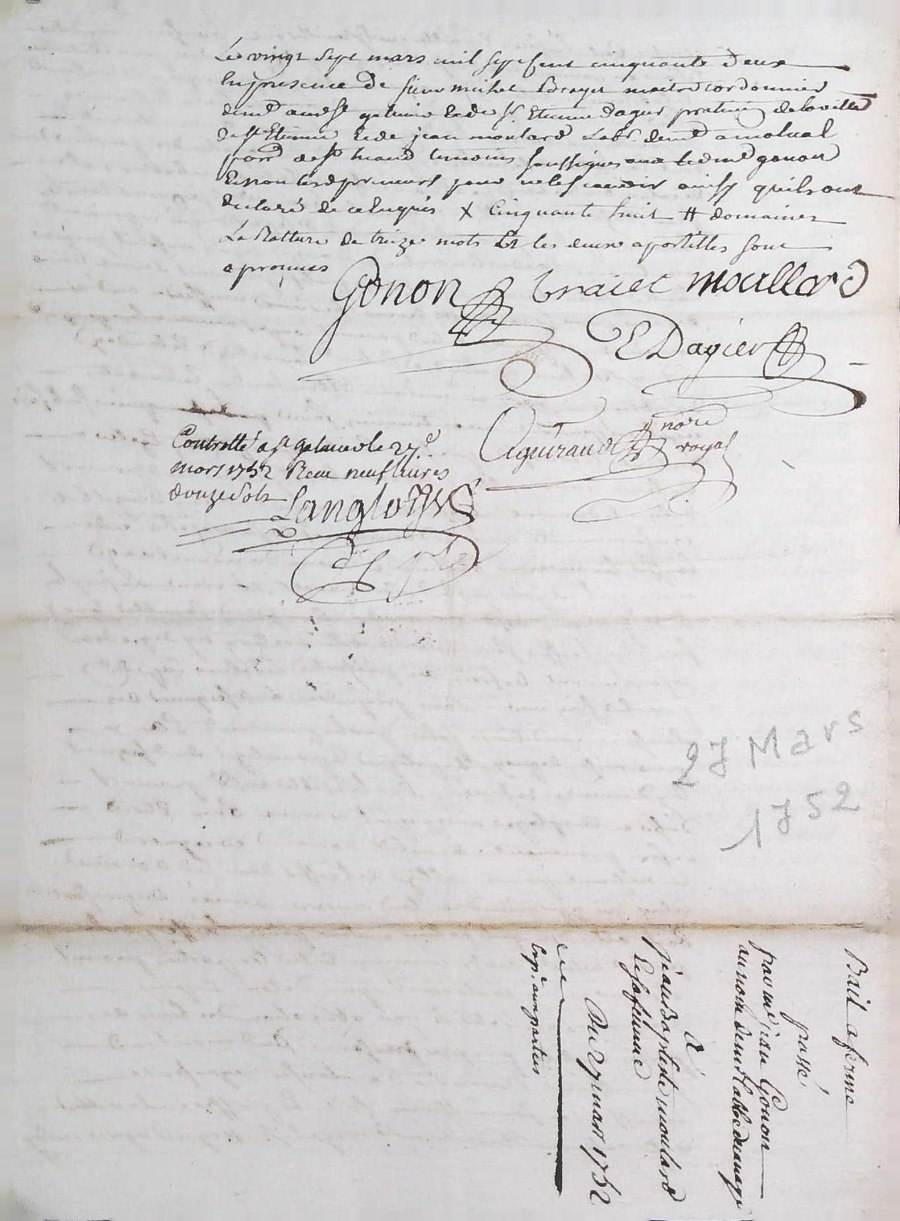 Le vingt sept mars mil sept cent cinquante deux
En presence de sieur michel maitre cordonnier
dem.t a st galmier & de s.r Etienne dagier praticien de la ville
de st Etienne & de jean moulard lab.r dem.t a
par.se de st temoins soussignes avec led. me gonon
& non led. preneurs pour ne le scavoir ainsy qu'ils ont
declaré de ce enquis X Cinquante huit # domaines
La Ratture de treize mots & les deux apostilles sont
aprouvés
Gonon traict moullard
E Dagier
Aguiraud no.re royal
Controllé a st galmier le 27.e
mars 1752 Receu neuf livres
douze sols
Langlois
27 Mars
1752
Bail a ferme
passé
par me jean Gonon
au nom de mr l'abbé
à
jean baptiste moulard
& sa femme
Du 27 mars 1752
Exp.é aux parties